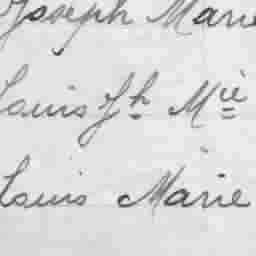 Joseph Marie
Louis Jh Mie
Louis Marie